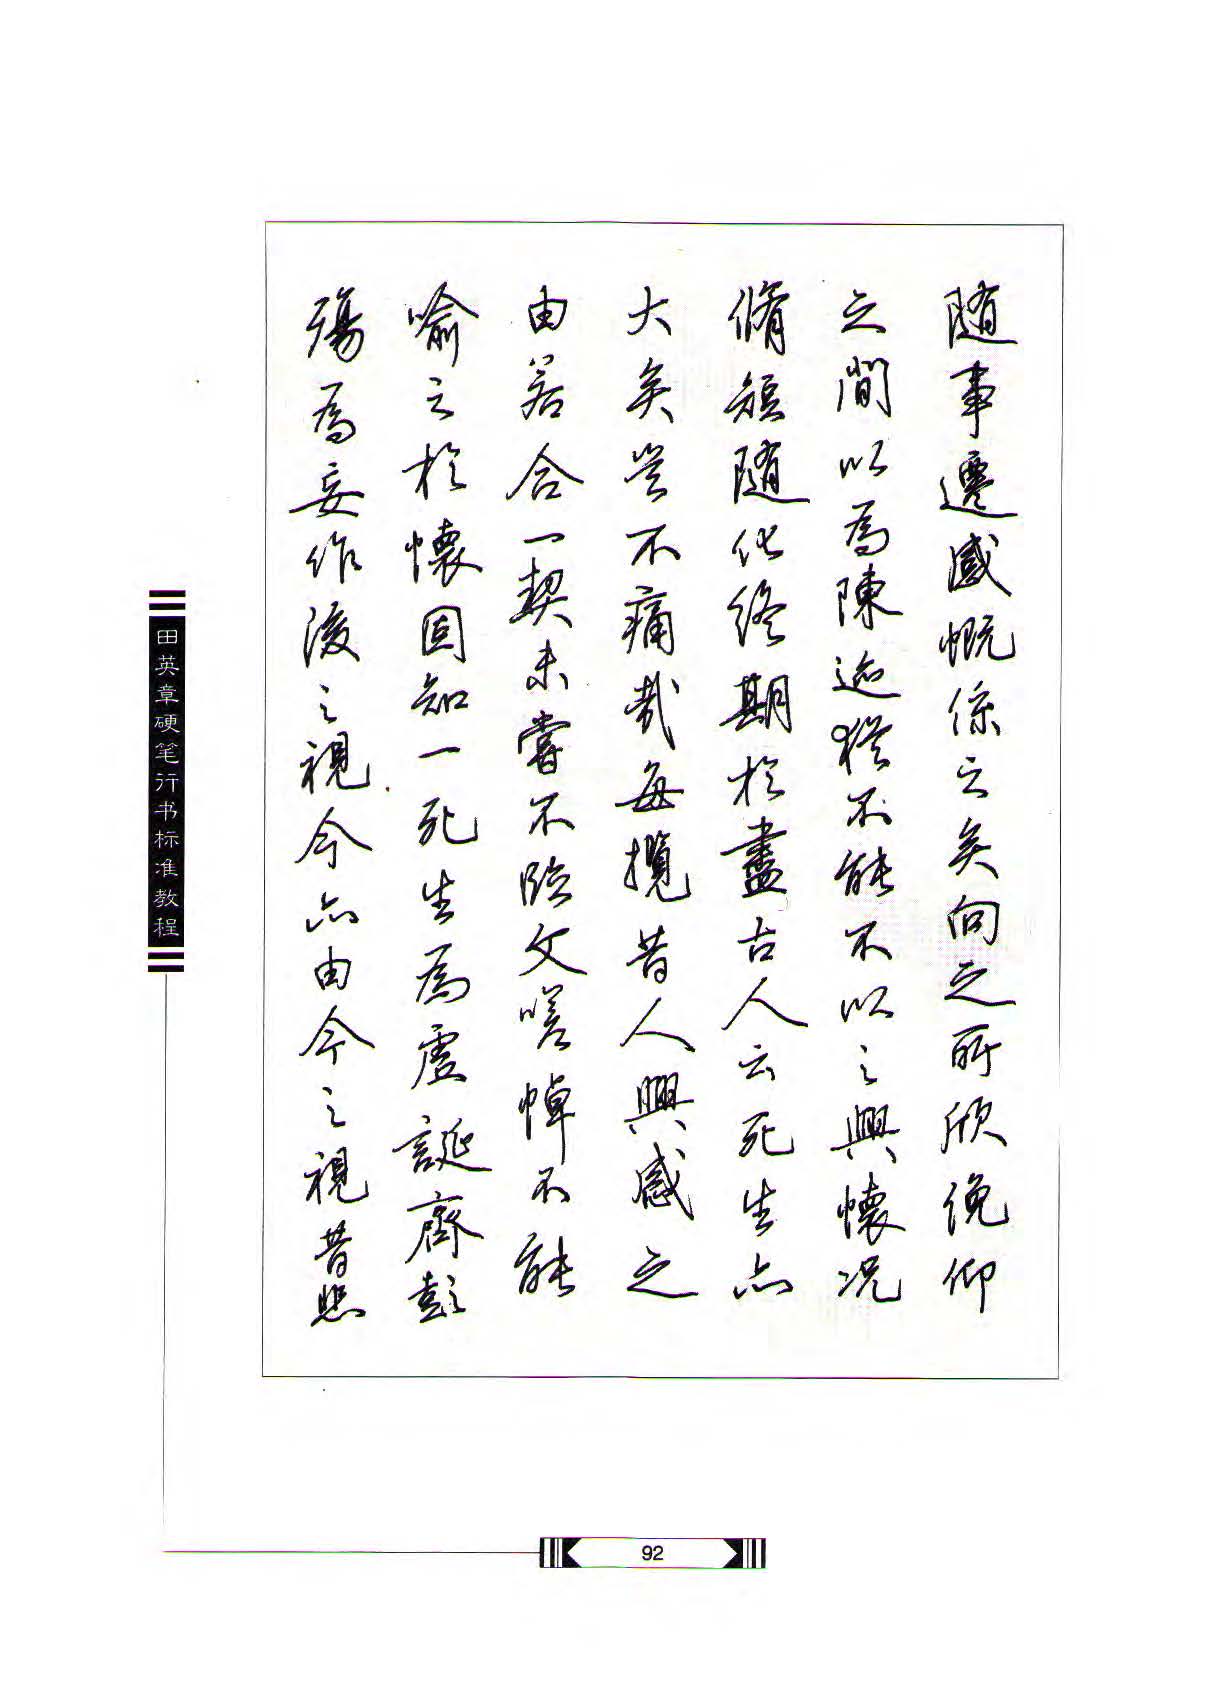 随事遷感慨係之矣向之所欣俛仰
之間以為陳迹猶不能不以之興懷況
脩短随化終期於盡古人云死生亦
大矣豈不痛哉每攬昔人興感之
由若合一契未嘗不臨文嗟悼不能
喻之於懷固知一死生為虛誕齊彭
殤為妄作後之視今亦由今之視昔悲
田英章硬笔行书标准教程
92